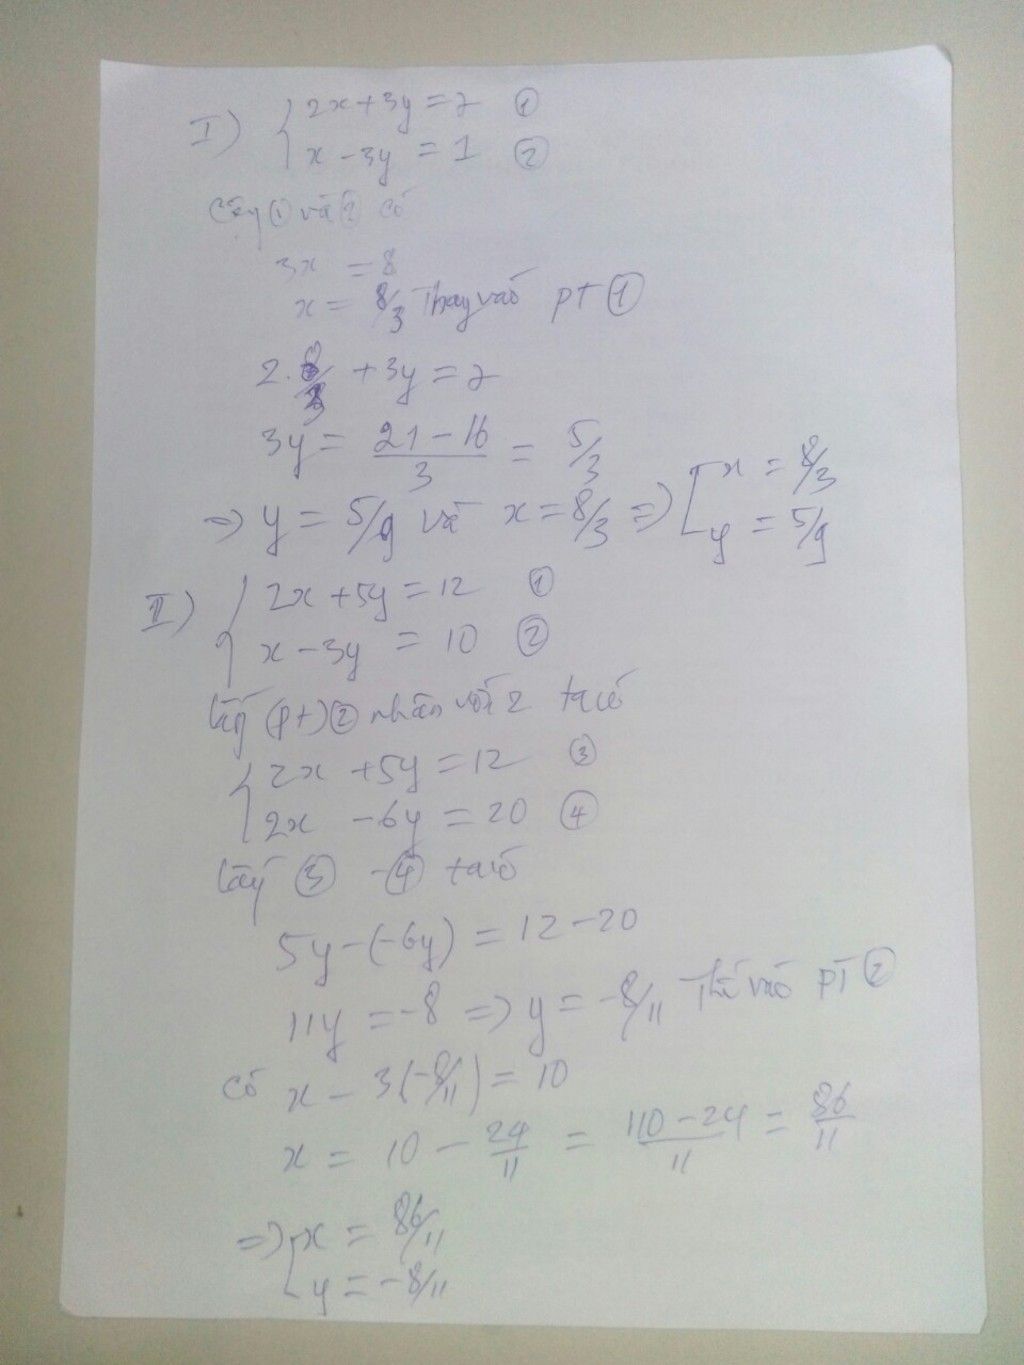 I) { 2x + 3y = 7 ①
x - 3y = 1 ②
Cộng ① và ② có
3x = 8
x = 8/3 Thay vào pt ①
2. 8/3 + 3y = 7
3y = (21 - 16)/3 = 5/3
=> y = 5/9 và x = 8/3 => [ x = 8/3
y = 5/9
II) { 2x + 5y = 12 ①
x - 3y = 10 ②
lấy (pt) ② nhân với 2 ta có
{ 2x + 5y = 12 ③
2x - 6y = 20 ④
lấy ③ - ④ ta có
5y - (-6y) = 12 - 20
11y = -8 => y = -8/11 Thế vào PT ②
có x - 3(-8/11) = 10
x = 10 - 24/11 = (110 - 24)/11 = 86/11
=> [ x = 86/11
y = -8/11